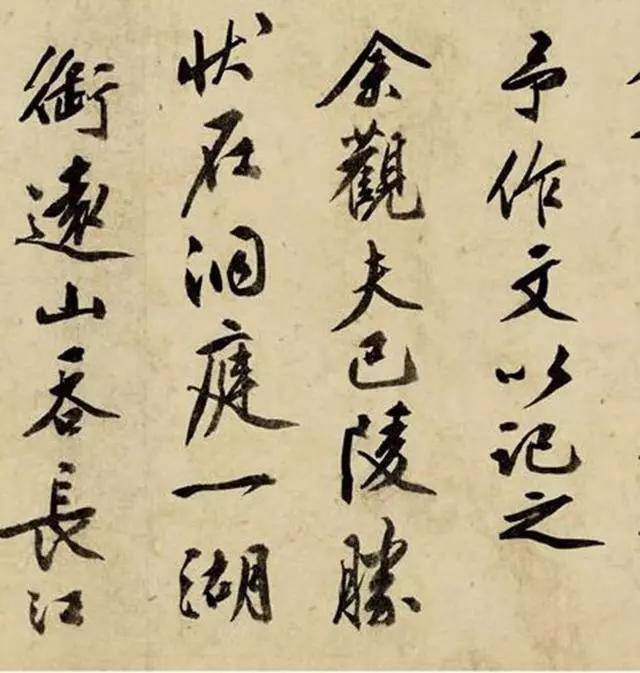 予作文以记之
余觀夫巴陵勝
状在洞庭一湖
銜遠山吞長江